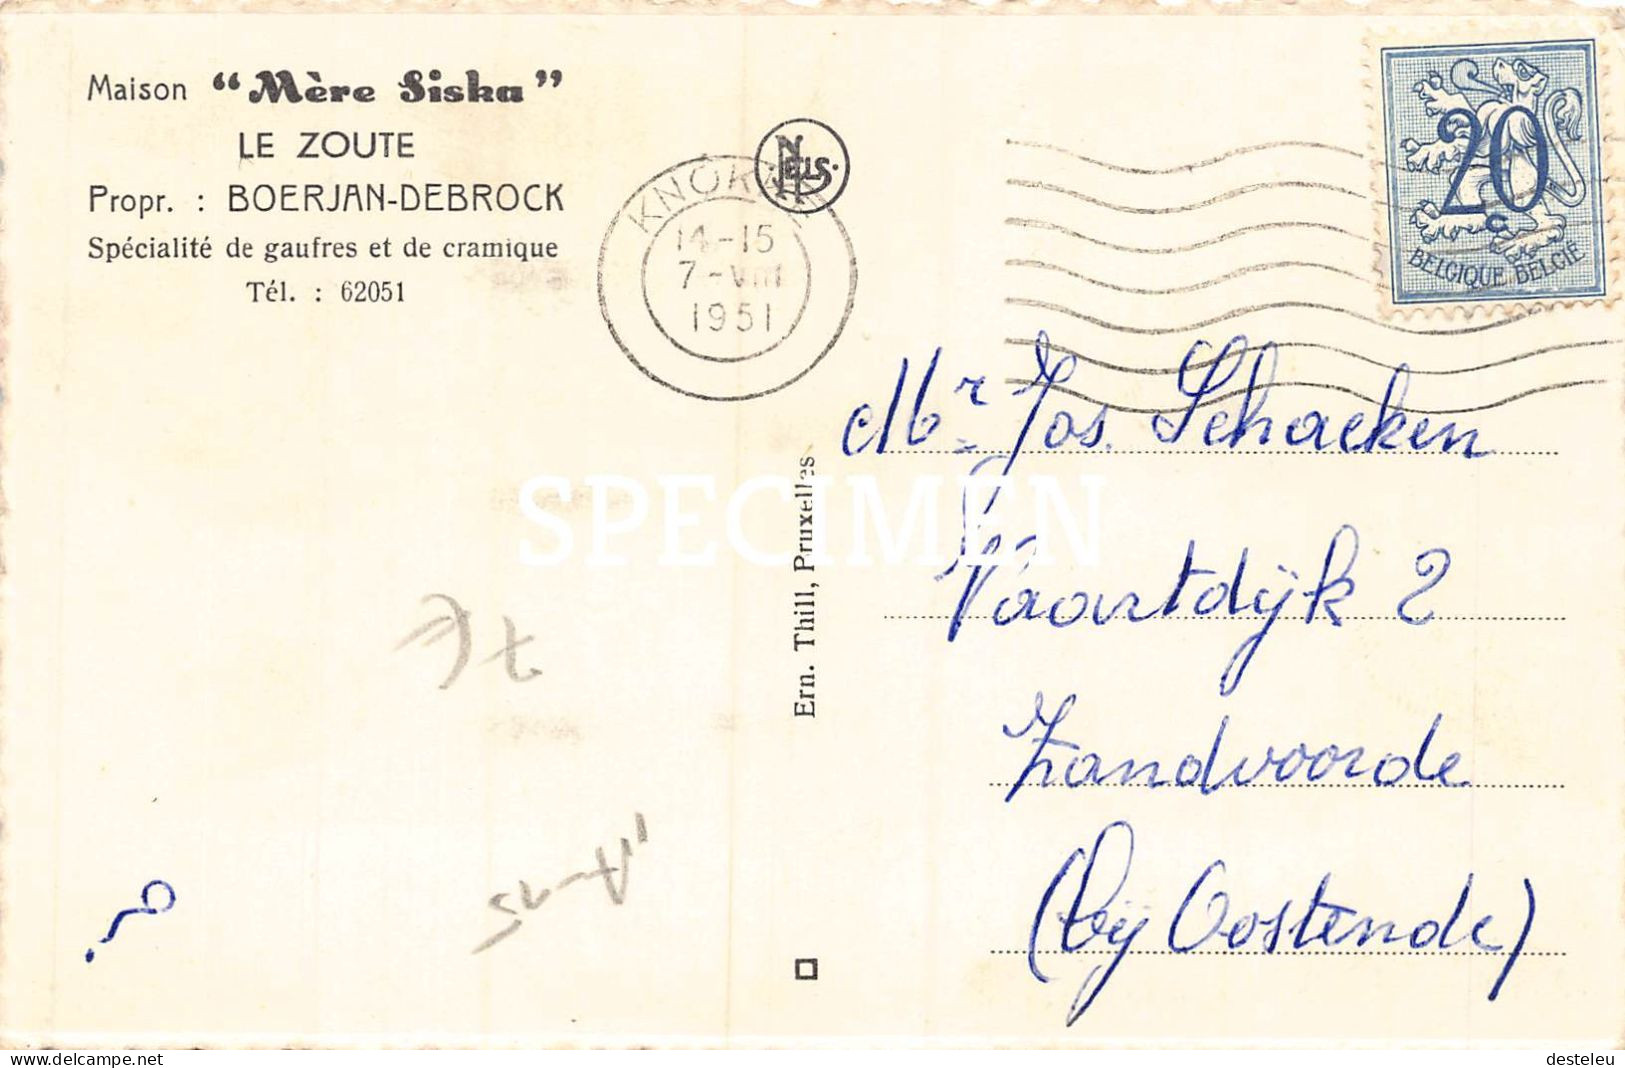 Maison "Mère Siska"
LE ZOUTE
Propr. : BOERJAN-DEBROCK
Spécialité de gaufres et de cramique
Tél. : 62051
NELS
KNOKKE
14-15
7-VIII
1951
20
c
BELGIQUE BELGIË
Mr. Jos. Schaeken
Vaartdijk 2
Zandvoorde
(bij Oostende)
Ern. Thill, Bruxelles
SPECIMEN
?
www.delcampe.net
desteleu